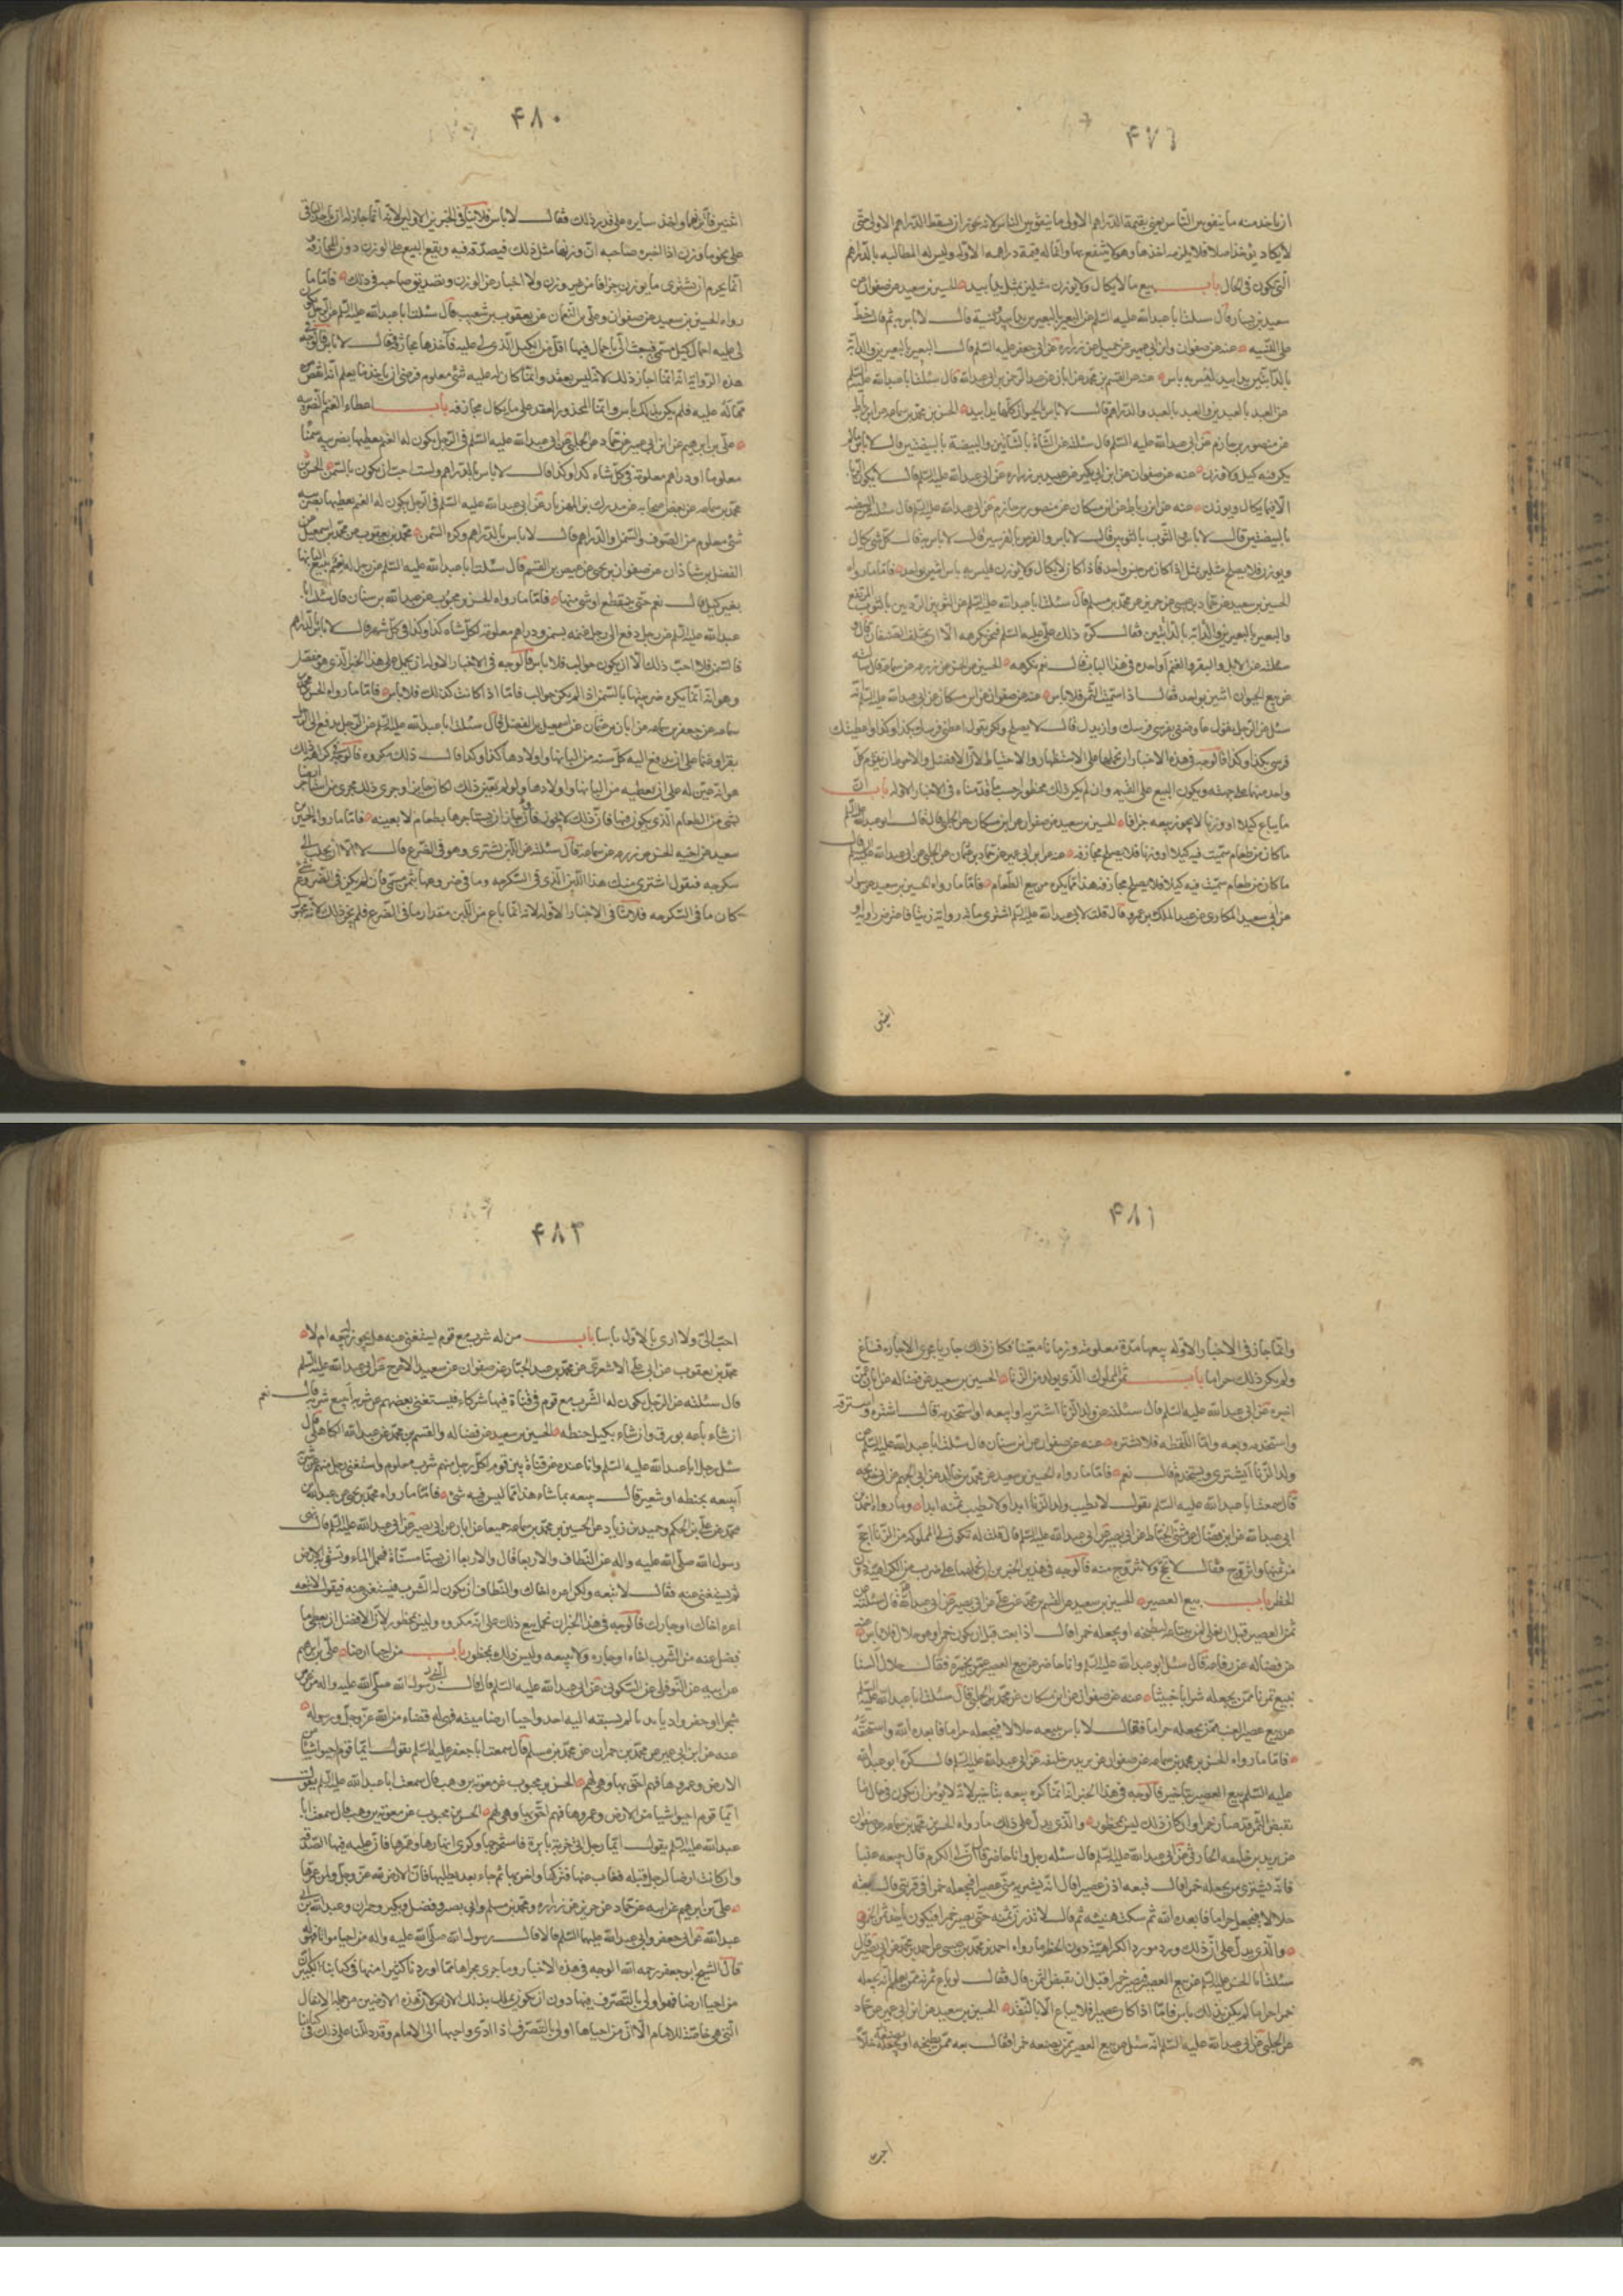 ۴۷۹
ان ياخذ منه ما ينفق بين الناس يعني بقيمة الدراهم الاولى ما ينفق بين الناس لانه يجوز ان يسقط الدراهم الاولى حتى
لا يكاد يؤخذ اصلا فلا يلزمه اخذها وهو لا ينتفع بها وانما له قيمة دراهمه الاولة وليس له المطالبة بالدراهم
التي تكون في الحال باب بيع ما لا يكال ولا يوزن مثلين بمثل يدا بيد الحسين بن سعيد عن صفوان عن
سعيد بن يسار قال سئلت ابا عبدالله عليه السلم عن البعير بالبعيرين يدا بيد ونسية فقال لا باس به ثم قال خط
على النسيه عنه عن صفوان وابن ابي عمير عن جميل عن زراره عن ابي جعفر عليه السلم قال البعير بالبعيرين والدابة
بالدابتين يدا بيد ليس به باس عنه عن القسم بن محمد عن ابان عن عبد الرحمن بن ابي عبدالله قال سئلت ابا عبدالله عليه السلم
عن العبد بالعبدين والعبد بالعبد والدراهم قال لا باس بالحيوان كلها يدا بيد الحسن بن محمد بن سماعه عن ابن رباط
عن منصور بن حازم عن ابي عبدالله عليه السلم قال سئلته عن الشاة بالشاتين والبيضة بالبيضتين قال لا باس ما لم
يكن فيه كيل ولا وزن عنه عن صفوان عن ابن بكير عن عبيد بن زراره عن ابي عبدالله عليه السلم قال لا يكون الربا
الا فيما يكال ويوزن عنه عن ابن رباط عن ابن مسكان عن منصور بن حازم عن ابي عبدالله عليه السلم قال سئلته عن البيضه
بالبيضتين قال لا باس والثوب بالثوبين قال لا باس والفرس بالفرسين قال لا باس ثم قال كل شي يكال
ويوزن فلا يصلح مثلين بمثل اذا كان من جنس واحد فاذا كان لا يكال ولا يوزن فليس به باس اثنين بواحد فاما ما رواه
الحسين بن سعيد عن حماد بن عيسى عن حريز عن محمد بن مسلم قال سئلت ابا عبدالله عليه السلم عن الثوبين الرديين بالثوب المرتفع
والبعير بالبعيرين والدابه بالدابتين فقال كره ذلك علي عليه السلم فنحن نكرهه الا ان يختلف الصنفان قال و
سئلته عن الابل والبقر والغنم او احدهن في هذا الباب فقال نعم نكرهه الحسين عن الحسن عن زرعه عن سماعه قال سئلته
عن بيع الحيوان اثنين بواحد فقال اذا سميت الثمن فلا باس عنه عن صفوان عن ابن مسكان عن ابي عبدالله عليه السلم انه
سئل عن الرجل يقول عاوضني بفرسي فرسك وازيدك قال لا يصلح ولكن يقول اعطني فرسك بكذا وكذا واعطيك
فرسي بكذا وكذا فالوجه في هذه الاخبار ان نحملها على الاستظهار والاحتياط لان الافضل والاحوط ان يقوم كل
واحد منهما على جهته ويكون البيع على القيمه وان لم يكن ذلك محظورا حسب ما قدمناه في الاخبار الاوله باب ان
ما يباع كيلا او وزنا لا يجوز بيعه جزافا الحسين بن سعيد عن صفوان عن ابن مسكان عن الحلبي قال قال ابو عبدالله عليه السلم
ما كان من طعام سميت فيه كيلا او وزنا فلا يصلح مجازفه عنه عن ابن ابي عمير عن حماد بن عثمان عن الحلبي عن ابي عبدالله عليه السلم قال
ما كان من طعام سميت فيه كيلا فلا يصلح مجازفة هذا مما يكره من بيع الطعام فاما ما رواه الحسين بن سعيد عن
عن ابي سعيد المكاري عن عبد الملك بن عمرو قال قلت لابي عبدالله عليه السلم اشتري مائة راوية زيتا فاعترض راوية او
اثنتين
۴۸۰
اثنتين فاتزنهما واخذ سايره على قدر ذلك فقال لا باس فلا ينافي الخبرين الاولين لانه انما جاز له ان ياخذ الباقي
على نحو ما وزن اذا اخبره صاحبه ان وزنها مثل ذلك فيصدقه فيه ويقع البيع على الوزن دون المجازفه
انما يحرم ان يشتري ما يوزن جزافا من غير وزن ولا اخبار عن الوزن وتصديق صاحبه في ذلك فاما ما
رواه الحسين بن سعيد عن صفوان وعلي بن النعمان عن يعقوب بن شعيب قال سئلت ابا عبدالله عليه السلم عن الرجل يكون
لي عليه احمال كيل مسمى فيبعث الي باحمال فيها اقل من الكيل الذي لي عليه فآخذها مجازفة فقال لا باس فالوجه في
هذه الرواية انه انما اجاز ذلك لانه ليس بعقد وانما كان له عليه شي معلوم فرضي ان ياخذ ما يعلم انه انقص
مما له عليه فلم يكن بذلك باس وانما المحذور العقد على ما يكال مجازفه باب اعطاء الغنم بالضريبه
علي بن ابرهيم عن ابن ابي عمير عن حماد عن الحلبي عن ابي عبدالله عليه السلم في الرجل يكون له الغنم يعطيها بضريبه سمنا
معلوما او دراهم معلومة في كل شاة كذا وكذا قال لا باس بالدراهم ولست احب ان يكون بالسمن الحسن بن
محمد بن سماعه عن بعض اصحابه عن مدرك بن الهزهاز عن ابي عبدالله عليه السلم في الرجل يكون له الغنم يعطيها بضريبه
شي معلوم من الصوف والسمن والدراهم قال لا باس بالدراهم وكره السمن محمد بن يعقوب عن محمد بن اسمعيل عن
الفضل بن شاذان عن صفوان بن يحيى عن عيص بن القسم قال سئلت ابا عبدالله عليه السلم عن رجل له غنم يبيع البانها
بغير كيل قال نعم حتى ينقطع او شي منها فاما ما رواه الحسن بن محبوب عن عبدالله بن سنان قال سئلت ابا
عبدالله عليه السلم عن رجل دفع الى رجل غنمه بسمن ودراهم معلومة لكل شاة كذا وكذا في كل شهر قال لا باس بالدراهم
فاما السمن فلا احب ذلك الا ان يكون حوالب فلا باس فالوجه في الاخبار الاولة ان يحمل على هذا الخبر الذي هو مفصل
وهو انه انما يكره ضريبتها بالسمن اذا لم يكن حوالب فاما اذا كانت كذلك فلا باس فاما ما رواه الحسن بن محمد
سماعه عن جعفر بن سماعه عن ابان بن عثمان عن اسمعيل بن الفضل قال سئلت ابا عبدالله عليه السلم عن الرجل يدفع الى الرجل
بقرا وغنما على ان يدفع اليه كل سنه من البانها واولادها كذا وكذا قال ذلك مكروه فالوجه في كراهيه ذلك
هو انه عين له على ان يعطيه من البانها واولادها ولو لم يعين ذلك لكان جايزا وجرى ذلك مجرى من استاجر ارضا
بشي من الطعام الذي يكون فيها فان ذلك لا يجوز وان جاز ان يستاجرها بطعام لا بعينه فاما ما رواه الحسين بن
سعيد عن اخيه الحسن عن زرعه عن سماعه قال سئلته عن اللبن يشترى وهو في الضرع قال لا الا ان يحلب الى
سكرجه فيقول اشتري منك هذا اللبن الذي في السكرجه وما في ضروعها بثمن مسمى فان لم يكن في الضروع شي
كان ما في السكرجه فلا ينافي الاخبار الاوله لانه انما باع من اللبن مقدار ما في الضرع فلم يجز ذلك لانه مجهول
۴۸۱
وانما جاز في الاخبار الاوله بيعها مدة معلومه وزمانا معينا فكان ذلك جاريا مجرى الاجاره فساغ
ولم يكن ذلك حراما باب ثمن المملوك الذي يولد من الزنا الحسين بن سعيد عن فضاله عن ابان عمن
اخبره عن ابي عبدالله عليه السلم قال سئلته عن ولد الزنا اشتريه او ابيعه او استخدمه فقال اشتره واسترقه
واستخدمه وبعه واما اللقطه فلا تشتره عنه عن صفوان عن ابن سنان قال سئلت ابا عبدالله عليه السلم عن
ولد الزنا ايشترى ويستخدم قال نعم فاما ما رواه الحسين بن سعيد عن محمد بن خالد عن ابي الجهم عن ابي خديجه
قال سمعت ابا عبدالله عليه السلم يقول لا يطيب ولد الزنا ابدا ولا يطيب ثمنه ابدا وما رواه احمد بن
ابي عبدالله عن ابن فضال عن مثنى الحناط عن ابي بصير عن ابي عبدالله عليه السلم قال قلت له تكون لي المملوكه من الزنا احج
من ثمنها واتزوج فقال لا تحج ولا تتزوج منه فالوجه في هذين الخبرين ان نحملهما على ضرب من الكراهيه دون
الحظر باب بيع العصير الحسين بن سعيد عن القسم بن محمد عن علي عن ابي بصير عن ابي عبدالله قال سئلته عن
ثمن العصير قبل ان يغلي لمن يبتاعه ليطبخه او يجعله خمرا قال اذا بعته قبل ان يكون خمرا وهو حلال فلا باس عنه
عن فضاله عن رفاعه قال سئل ابو عبدالله عليه السلم وانا حاضر عن بيع العصير ممن يخمره فقال حلال السنا
نبيع تمرنا ممن يجعله شرابا خبيثا عنه عن صفوان عن ابن مسكان عن محمد الحلبي قال سئلت ابا عبدالله عليه السلم
عن بيع عصير العنب ممن يجعله حراما فقال لا باس ببيعه حلالا فيجعله حراما فابعده الله واسحقه
فاما ما رواه الحسن بن محمد بن سماعه عن صفوان عن يزيد بن خليفه عن ابي عبدالله عليه السلم قال كره ابو عبدالله
عليه السلم بيع العصير بتاخير فالوجه في هذا الخبر انه انما كره بيعه بتاخير لانه لا يؤمن ان يكون في حال ما
يقبض الثمن قد صار خمرا وان كان ذلك ليس بمحظور والذي يدل على ذلك ما رواه الحسن بن محمد بن سماعه عن صفوان
عن يزيد بن خليفه الحارثي عن ابي عبدالله عليه السلم قال سئله رجل وانا حاضر قال ان لي الكرم قال بيعه عنبا
فانه يشتريه من يجعله خمرا قال فبعه اذن عصيرا قال انه يشتريه مني عصيرا فيجعله خمرا في قربتي قال بعته
حلالا فيجعل حراما فابعده الله ثم سكت هنيئه ثم قال لا تذرن ثمنه حتى يصير خمرا فيكون ياخذ ثمن الخمر
والذي يدل على ان ذلك ورد مورد الكراهيه دون الحظر ما رواه احمد بن محمد بن عيسى عن احمد بن محمد بن ابي نصر قال
سئلت ابا الحسن عليه السلم عن بيع العصير فيصير خمرا قبل ان يقبض الثمن قال فقال لو باع ثمرته ممن يعلم انه يجعله
خمرا حراما لم يكن بذلك باس فاما اذا كان عصيرا فلا يباع الا بالنقد الحسين بن سعيد عن ابن ابي عمير عن حماد
عن الحلبي عن ابي عبدالله عليه السلم انه سئل عن بيع العصير ممن يصنعه خمرا فقال بعه ممن يطبخه او يصنعه خلا
احب
۴۸۲
احب الي ولا ارى بالاول باسا باب من له شرب مع قوم يستغني عنه هل يجوز بيعه ام لا
محمد بن يعقوب عن ابي علي الاشعري عن محمد بن عبد الجبار عن صفوان عن سعيد الاعرج عن ابي عبدالله عليه السلم
قال سئلته عن الرجل يكون له الشرب مع قوم في قناة فيها شركاء فيستغني بعضهم عن شربه ايبيع شربه قال نعم
ان شاء باعه بورق وان شاء بكيل حنطه الحسين بن سعيد عن فضاله والقسم بن محمد عن عبدالله الكاهلي قال
سئل رجل ابا عبدالله عليه السلم وانا عنده عن قناة بين قوم لكل رجل منهم شرب معلوم واستغنى رجل منهم عن شربه
ايبيعه بحنطه او شعير قال يبيعه بما شاء هذا مما ليس فيه شي فاما ما رواه محمد بن يحيى عن عبدالله بن
محمد عن علي بن الحكم وحميد بن زياد عن الحسن بن محمد بن سماعه جميعا عن ابان عن ابي بصير عن ابي عبدالله عليه السلم قال نهى
رسول الله صلى الله عليه واله عن النطاف والاربعا قال والاربعا ان يسنا مسناة فيحمل الماء وتسقي به الارض
ثم يستغني عنه فقال لا تبعه ولكن اعره اخاك والنطاف ان يكون له الشرب فيستغني عنه فيقول لا تبعه
اعره اخاك او جارك فالوجه في هذا الخبر ان نحمل بيع ذلك على انه مكروه وليس بمحظور لان الافضل ان يعطي ما
فضل عنه من الشرب اخاه او جاره ولا يبيعه وليس ذلك بمحظور باب من احيا ارضا علي بن ابرهيم
عن ابيه عن النوفلي عن السكوني عن ابي عبدالله عليه السلم قال قال رسول الله صلى الله عليه واله من غرس
شجرا او حفر واديا بديا لم يسبقه اليه احد واحيا ارضا ميته فهي له قضاء من الله عز وجل ورسوله
عنه عن ابن ابي عمير عن محمد بن حمران عن محمد بن مسلم قال سمعت ابا جعفر عليه السلم يقول ايما قوم احيوا شيئا من
الارض وعمروها فهم احق بها وهي لهم الحسن بن محبوب عن معويه بن وهب قال سمعت ابا عبدالله عليه السلم يقول
ايما قوم احيوا شيئا من الارض وعمروها فهم احق بها وهي لهم الحسن بن محبوب عن معويه بن وهب قال سمعت ابا
عبدالله عليه السلم يقول ايما رجل اتى خربة بايرة فاستخرجها وكرى انهارها وعمرها فان عليه فيها الصدقه
وان كانت ارضا لرجل قبله فغاب عنها فتركها واخربها ثم جاء بعد يطلبها فان الارض لله عز وجل ولمن عمرها
علي بن ابرهيم عن ابيه عن حماد عن حريز عن زراره ومحمد بن مسلم وابي بصير وفضيل وبكير وحمران وعبد الرحمن بن ابي
عبدالله عن ابي جعفر وابي عبدالله عليهما السلم قالا قال رسول الله صلى الله عليه واله من احيا مواتا فهو له
قال الشيخ ابو جعفر رحمه الله الوجه في هذه الاخبار وما جرى مجراها مما اوردنا كثيرا منها في كتابنا الكبير ان
من احيا ارضا فهو اولى بالتصرف فيها دون ان يكون يملك بذلك الارض لان هذه الارضين من جملة الانفال
التي هي خاصة للامام الا ان من احياها اولى بالتصرف اذا ادى واجبها الى الامام وقد دللنا على ذلك في كتابنا